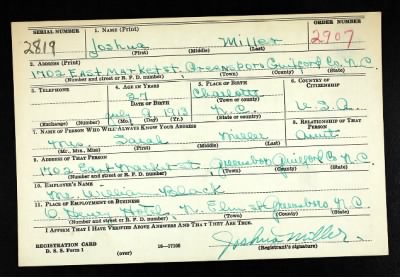 SERIAL NUMBER 1. NAME (Print) ORDER NUMBER
2819 Joshua Miller 2907
(First) (Middle) (Last)
2. ADDRESS (Print)
1702 East Market st. Greensboro Guilford Co. N.C.
(Number and street or R. F. D. number) (Town) (County) (State)
3. TELEPHONE 4. AGE IN YEARS 5. PLACE OF BIRTH 6. COUNTRY OF CITIZENSHIP
27 Charlotte
DATE OF BIRTH (Town or county)
July 1913 N.C. U.S.A.
(Exchange) (Number) (Mo.) (Day) (Yr.) (State or country)
7. NAME OF PERSON WHO WILL ALWAYS KNOW YOUR ADDRESS 8. RELATIONSHIP OF THAT PERSON
Mrs. Sarah Miller Aunt
(Mr., Mrs., Miss) (First) (Middle) (Last)
9. ADDRESS OF THAT PERSON
1702 East Market st. Greensboro Guilford Co N.C.
(Number and street or R. F. D. number) (Town) (County) (State)
10. EMPLOYER'S NAME
Mr. William Black
11. PLACE OF EMPLOYMENT OR BUSINESS
O. Henry Hotel, N. Elm st Greensboro N.C.
(Number and street or R. F. D. number) (Town) (County) (State)
I AFFIRM THAT I HAVE VERIFIED ABOVE ANSWERS AND THAT THEY ARE TRUE.
REGISTRATION CARD
D. S. S. Form 1 (over) 16—17105 Joshua Miller.
(Registrant's signature)